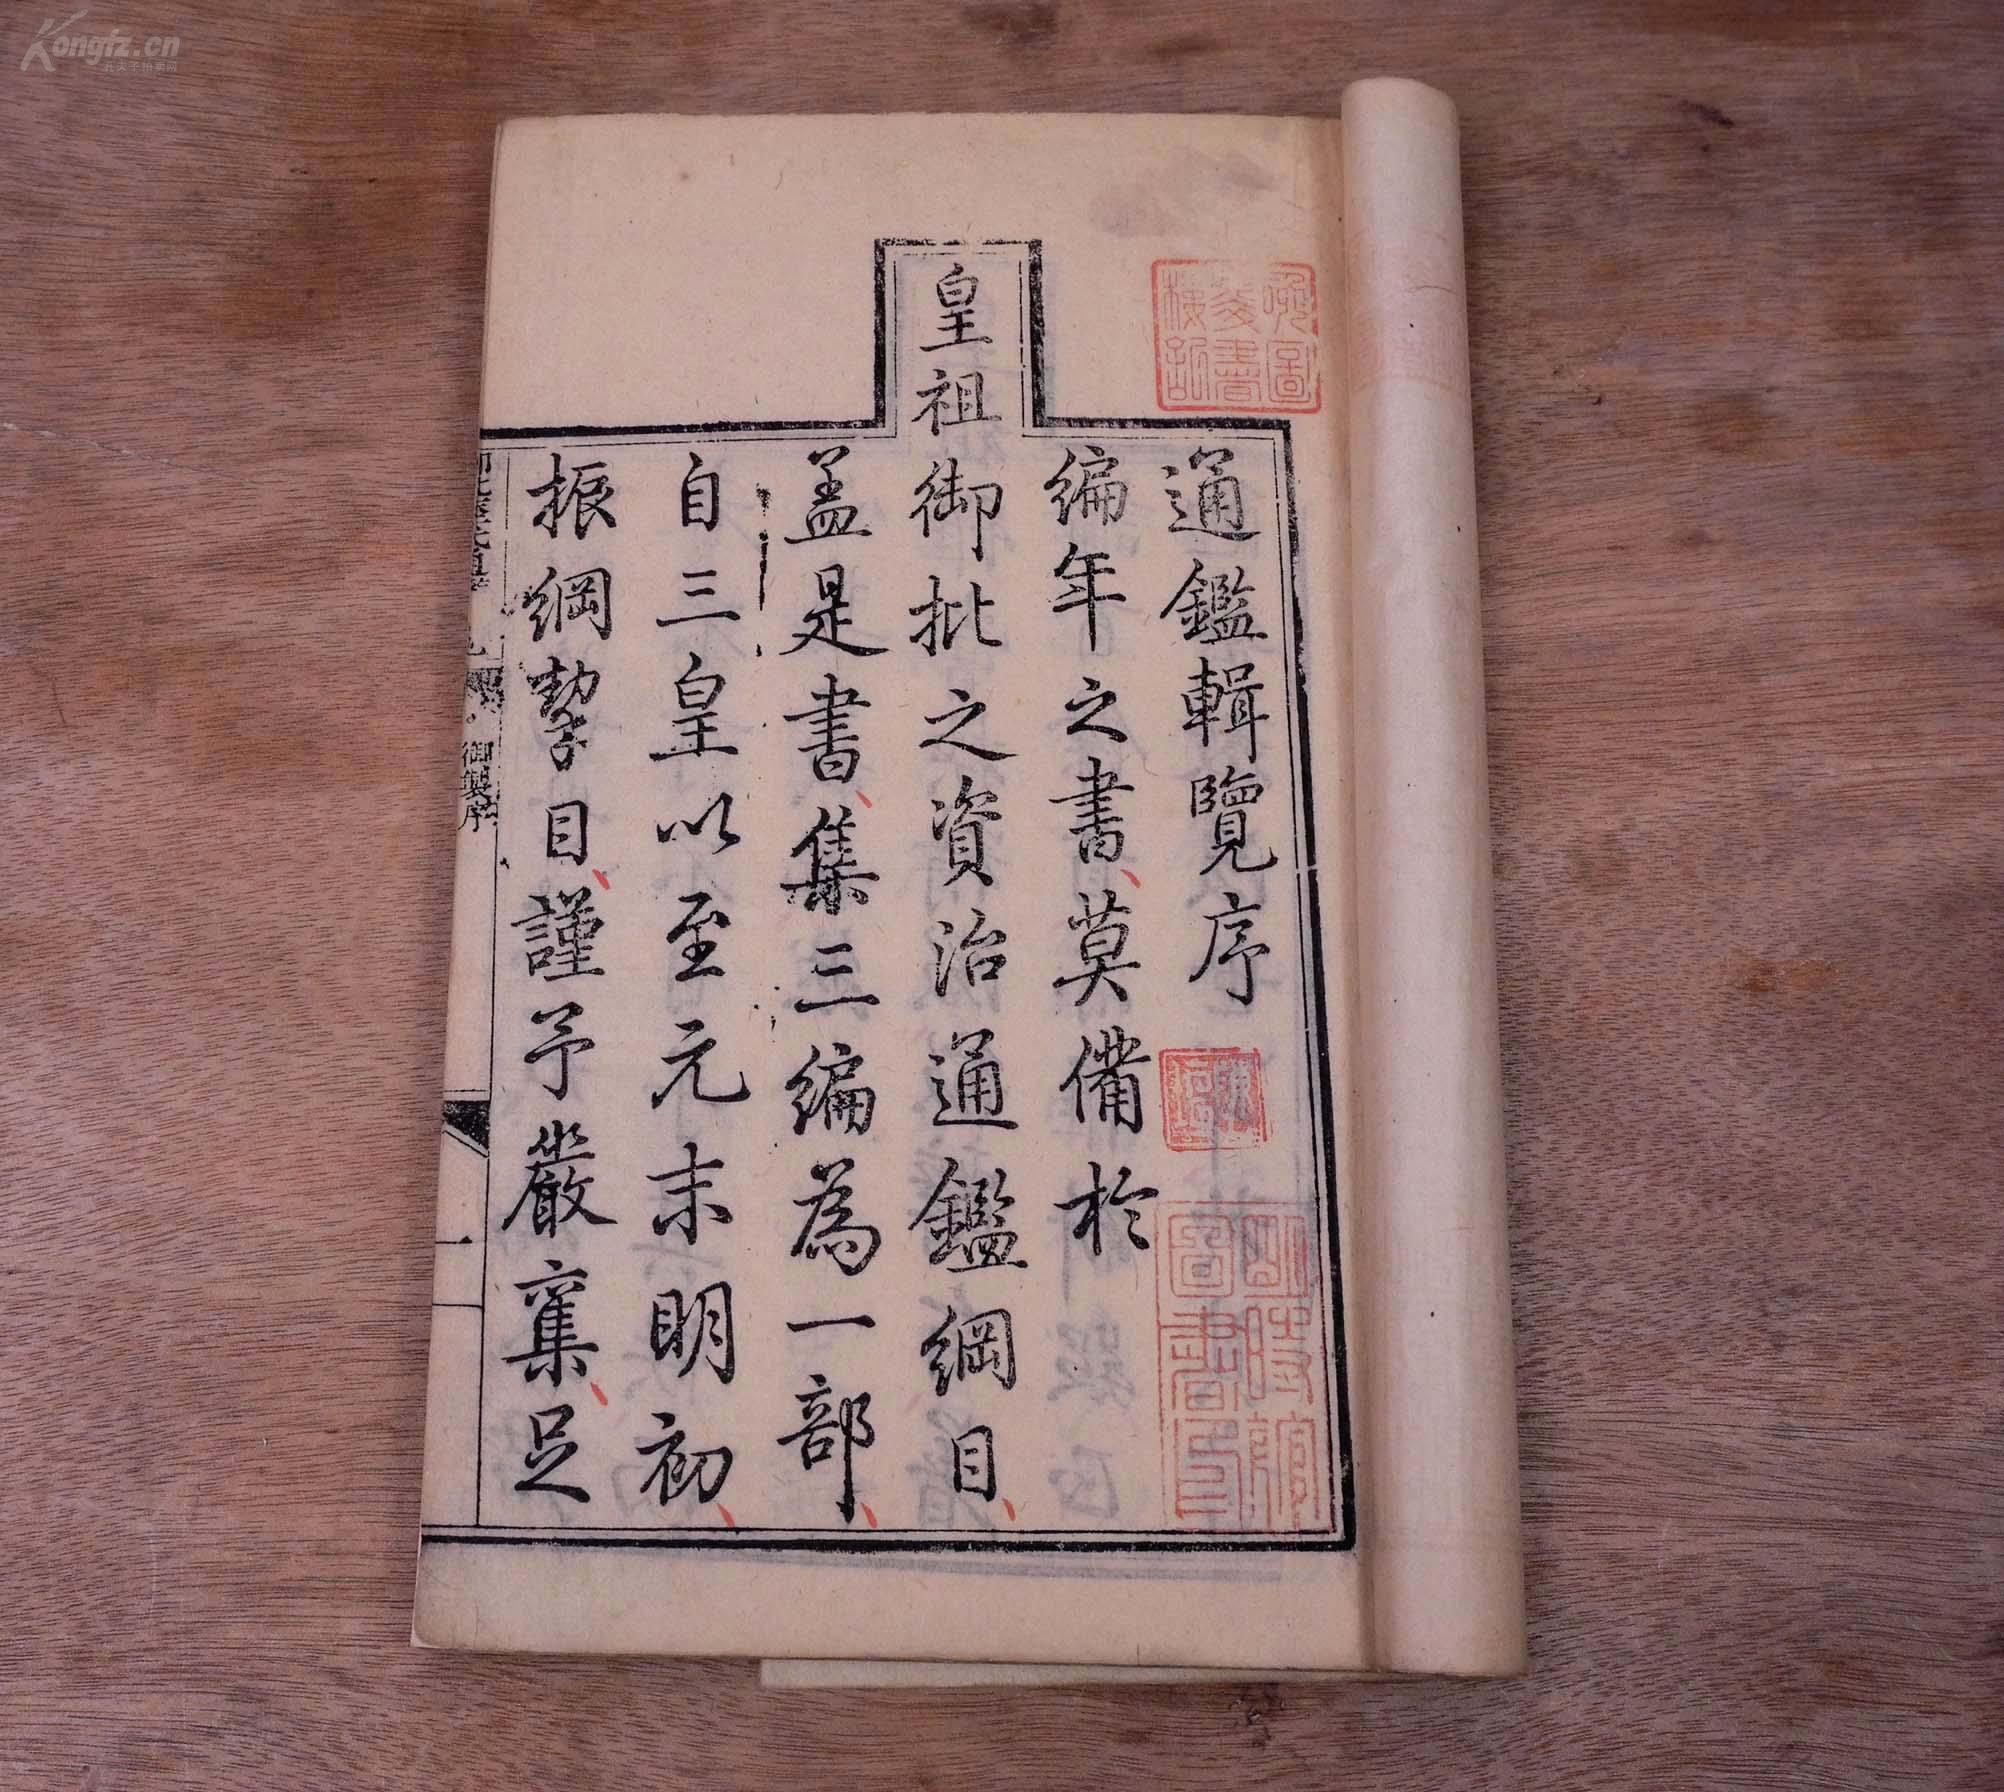 通鑑輯覽序
編年之書莫備於
皇祖御批之資治通鑑綱目
盖是書集三編為一部
自三皇以至元末明初
振綱挈目謹予嚴奪足
御製序
一
Kongfz.cn
孔夫子拍卖网